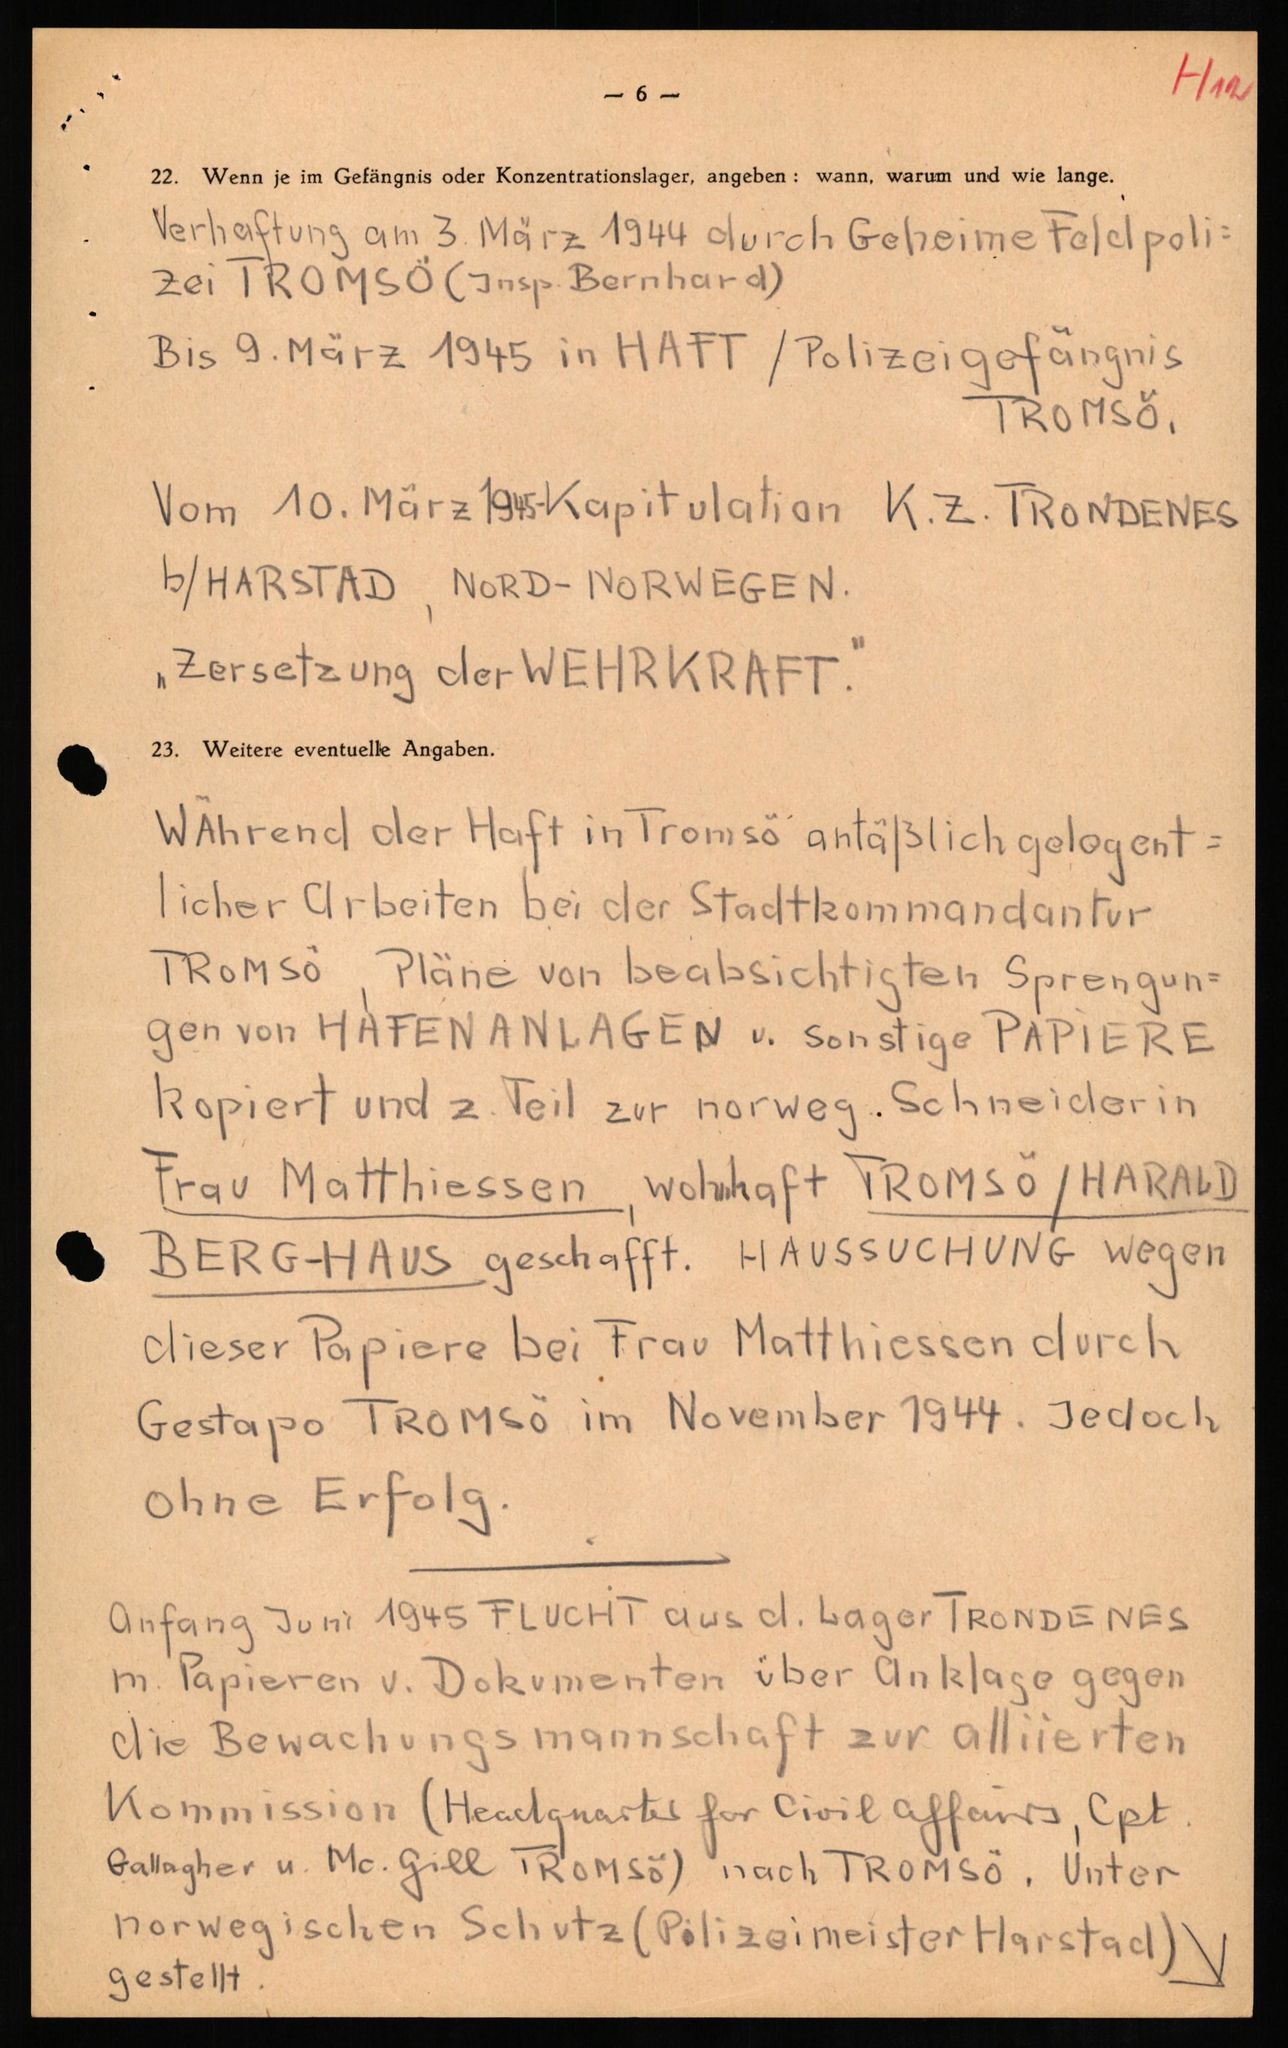 — 6 —
H12
22. Wenn je im Gefängnis oder Konzentrationslager, angeben: wann, warum und wie lange.
Verhaftung am 3. März 1944 durch Geheime Feldpoli=
zei TROMSÖ (Insp. Bernhard)
Bis 9. März 1945 in HAFT / Polizeigefängnis
TROMSÖ.
Vom 10. März 1945-Kapitulation K.Z. TRONDENES
b/HARSTAD, NORD-NORWEGEN.
„Zersetzung der WEHRKRAFT."
23. Weitere eventuelle Angaben.
WÄhrend der Haft in Tromsö antäßlich gelegent=
licher Arbeiten bei der Stadtkommandantur
TROMSÖ, Pläne von beabsichtigten Sprengun=
gen von HAFENANLAGEN u. sonstige PAPIERE
kopiert und z. Teil zur norweg. Schneiderin
Frau Matthiessen, wohnhaft TROMSÖ/HARALD
BERG-HAUS geschafft. HAUSSUCHUNG wegen
dieser Papiere bei Frau Matthiessen durch
Gestapo TROMSÖ im November 1944. Jedoch
ohne Erfolg.
Anfang Juni 1945 FLUCHT aus d. Lager TRONDENES
m. Papieren u. Dokumenten über Anklage gegen
die Bewachungsmannschaft zur alliierten
Kommission (Headquarters for Civil affairs, Cpt.
Gallagher u. Mc. Gill TROMSÖ) nach TROMSÖ. Unter
norwegischen Schutz (Polizeimeister Harstad)
gestellt.